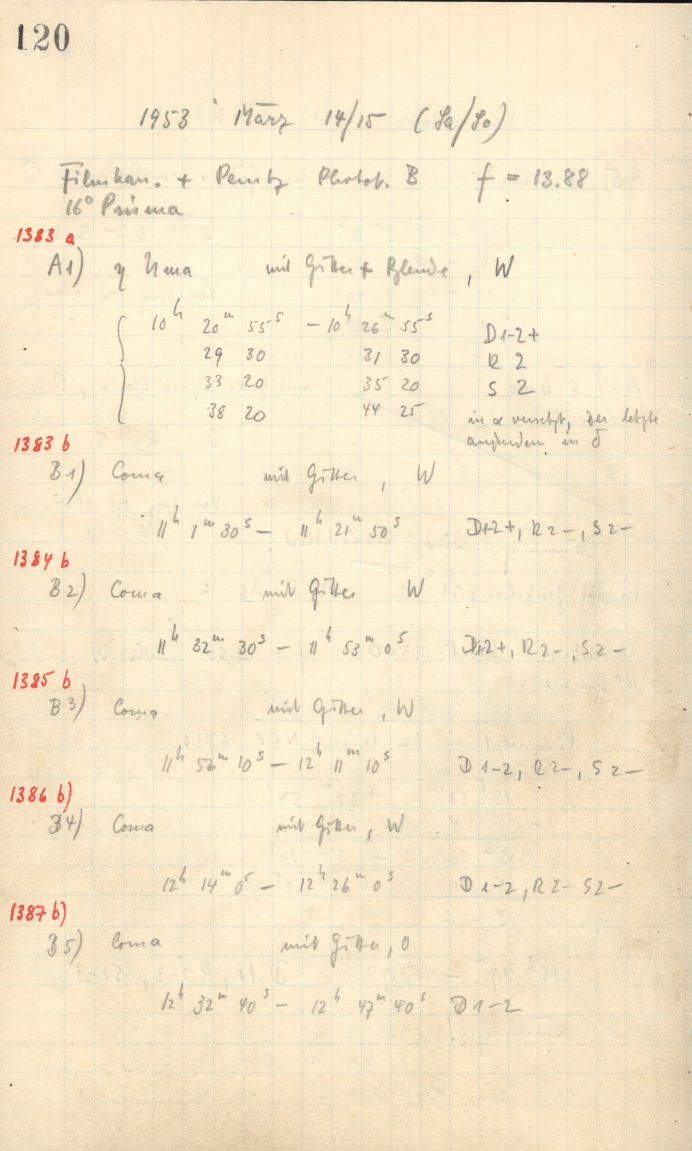 120
1953 März 14/15 (Sa/So)
Filmkam. + Perutz Photot. B f = 13.88
16° Prisma
1383 a
A1) η Urma mit Gitter + Blende, W
10h 20m 55s – 10h 26m 55s D1-2+
29 30 31 30 R 2
33 20 35 20 S 2
38 20 44 25 in α versetzt, der letzte
in δ
1383 b
B1) Coma mit Gitter, W
11h 1m 30s – 11h 21m 50s D1-2+, R2-, S2-
1384 b
B2) Coma mit Gitter W
11h 32m 30s – 11h 53m 0s D1-2+, R2-, S2-
1385 b
B3) Coma mit Gitter, W
11h 56m 10s – 12h 11m 10s D1-2, R2-, S2-
1386 b)
B4) Coma mit Gitter, W
12h 14m 0s – 12h 26m 0s D1-2, R2- S2-
1387 b)
B5) Coma mit Gitter, O
12h 32m 40s – 12h 47m 40s D1-2